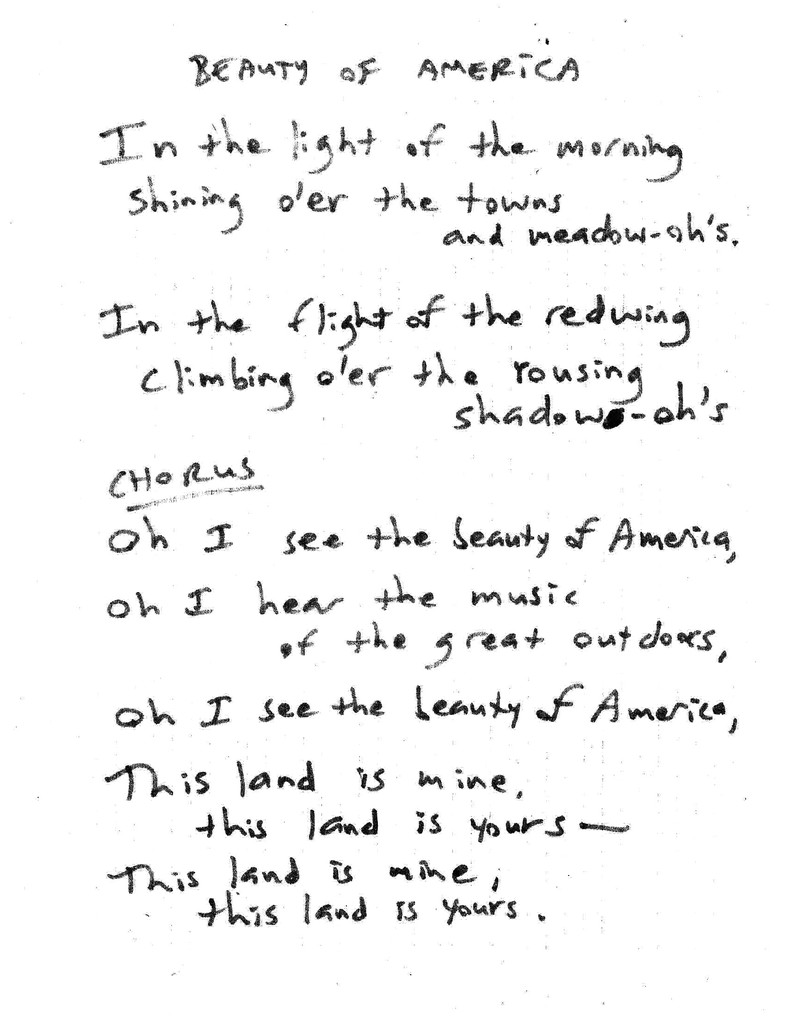 BEAUTY OF AMERICA
In the light of the morning
shining o'er the towns
and meadow-oh's.
In the flight of the redwing
climbing o'er the rousing
shadow-oh's
CHORUS
Oh I see the beauty of America,
oh I hear the music
of the great outdoors,
oh I see the beauty of America,
This land is mine,
this land is yours—
This land is mine,
this land is yours.